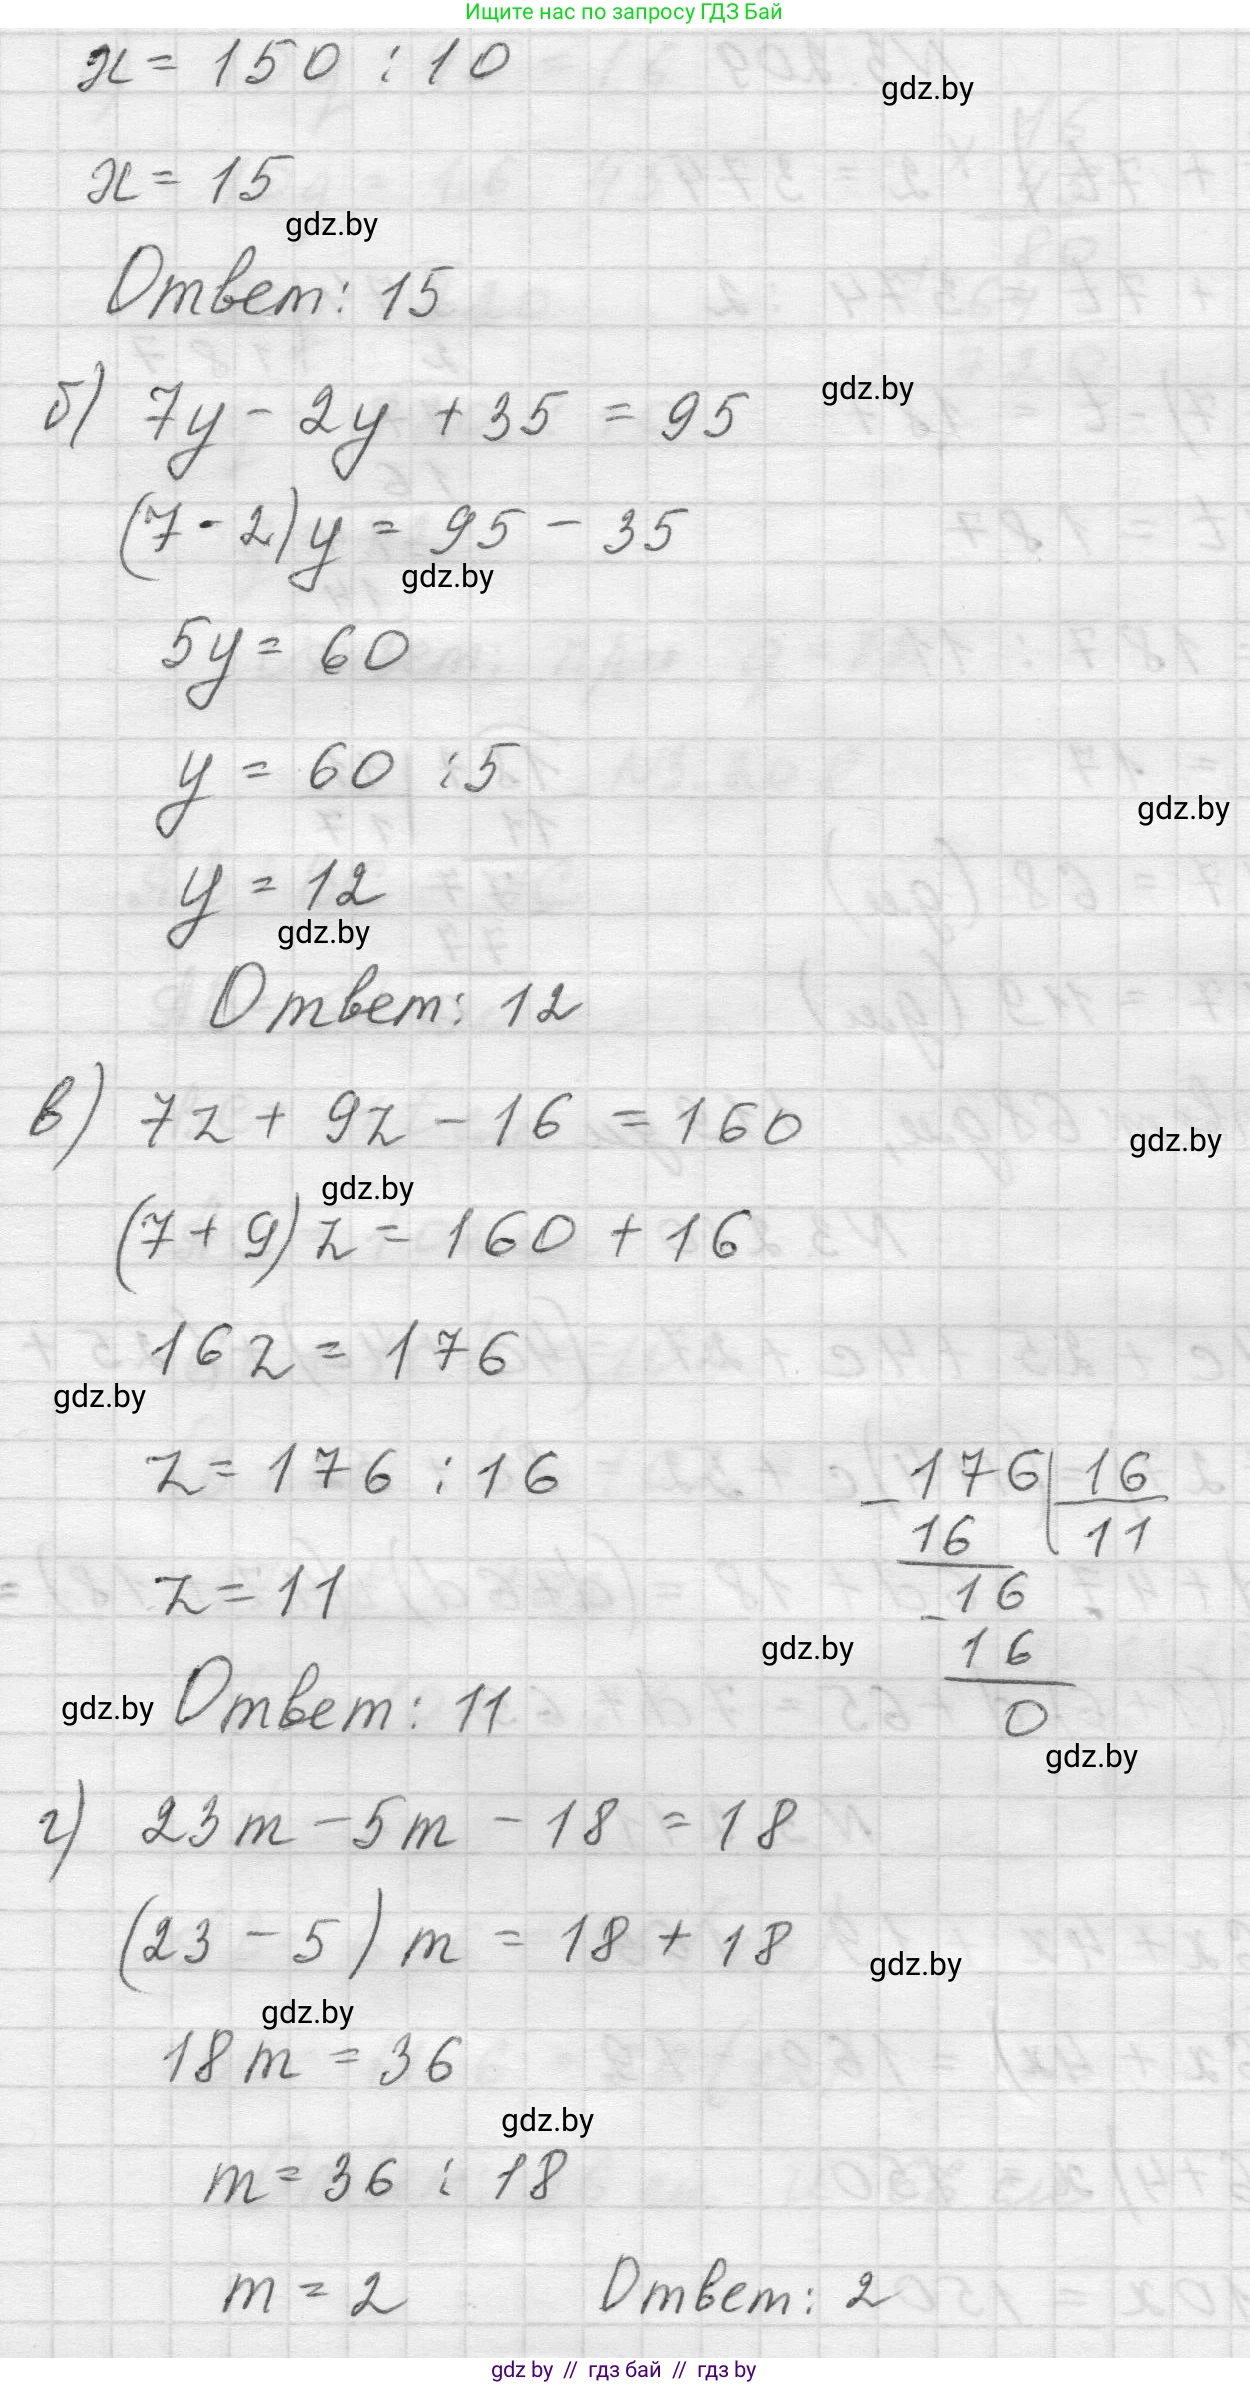 Ищите нас по запросу ГДЗ Бай
x = 150 : 10
gdz.by
x = 15
gdz.by
Ответ: 15
б) 7y - 2y + 35 = 95
gdz.by
(7 - 2)y = 95 - 35
gdz.by
5y = 60
y = 60 : 5
gdz.by
y = 12
gdz.by
Ответ: 12
в) 7z + 9z - 16 = 160
gdz.by
gdz.by
(7 + 9)z = 160 + 16
16z = 176
gdz.by
z = 176 : 16
176 | 16
- 16 11
z = 11
- 16
16
0
gdz.by
gdz.by
Ответ: 11
gdz.by
г) 23m - 5m - 18 = 18
(23 - 5)m = 18 + 18
gdz.by
gdz.by
18m = 36
gdz.by
m = 36 : 18
m = 2 Ответ: 2
gdz by // гдз бай // гдз by